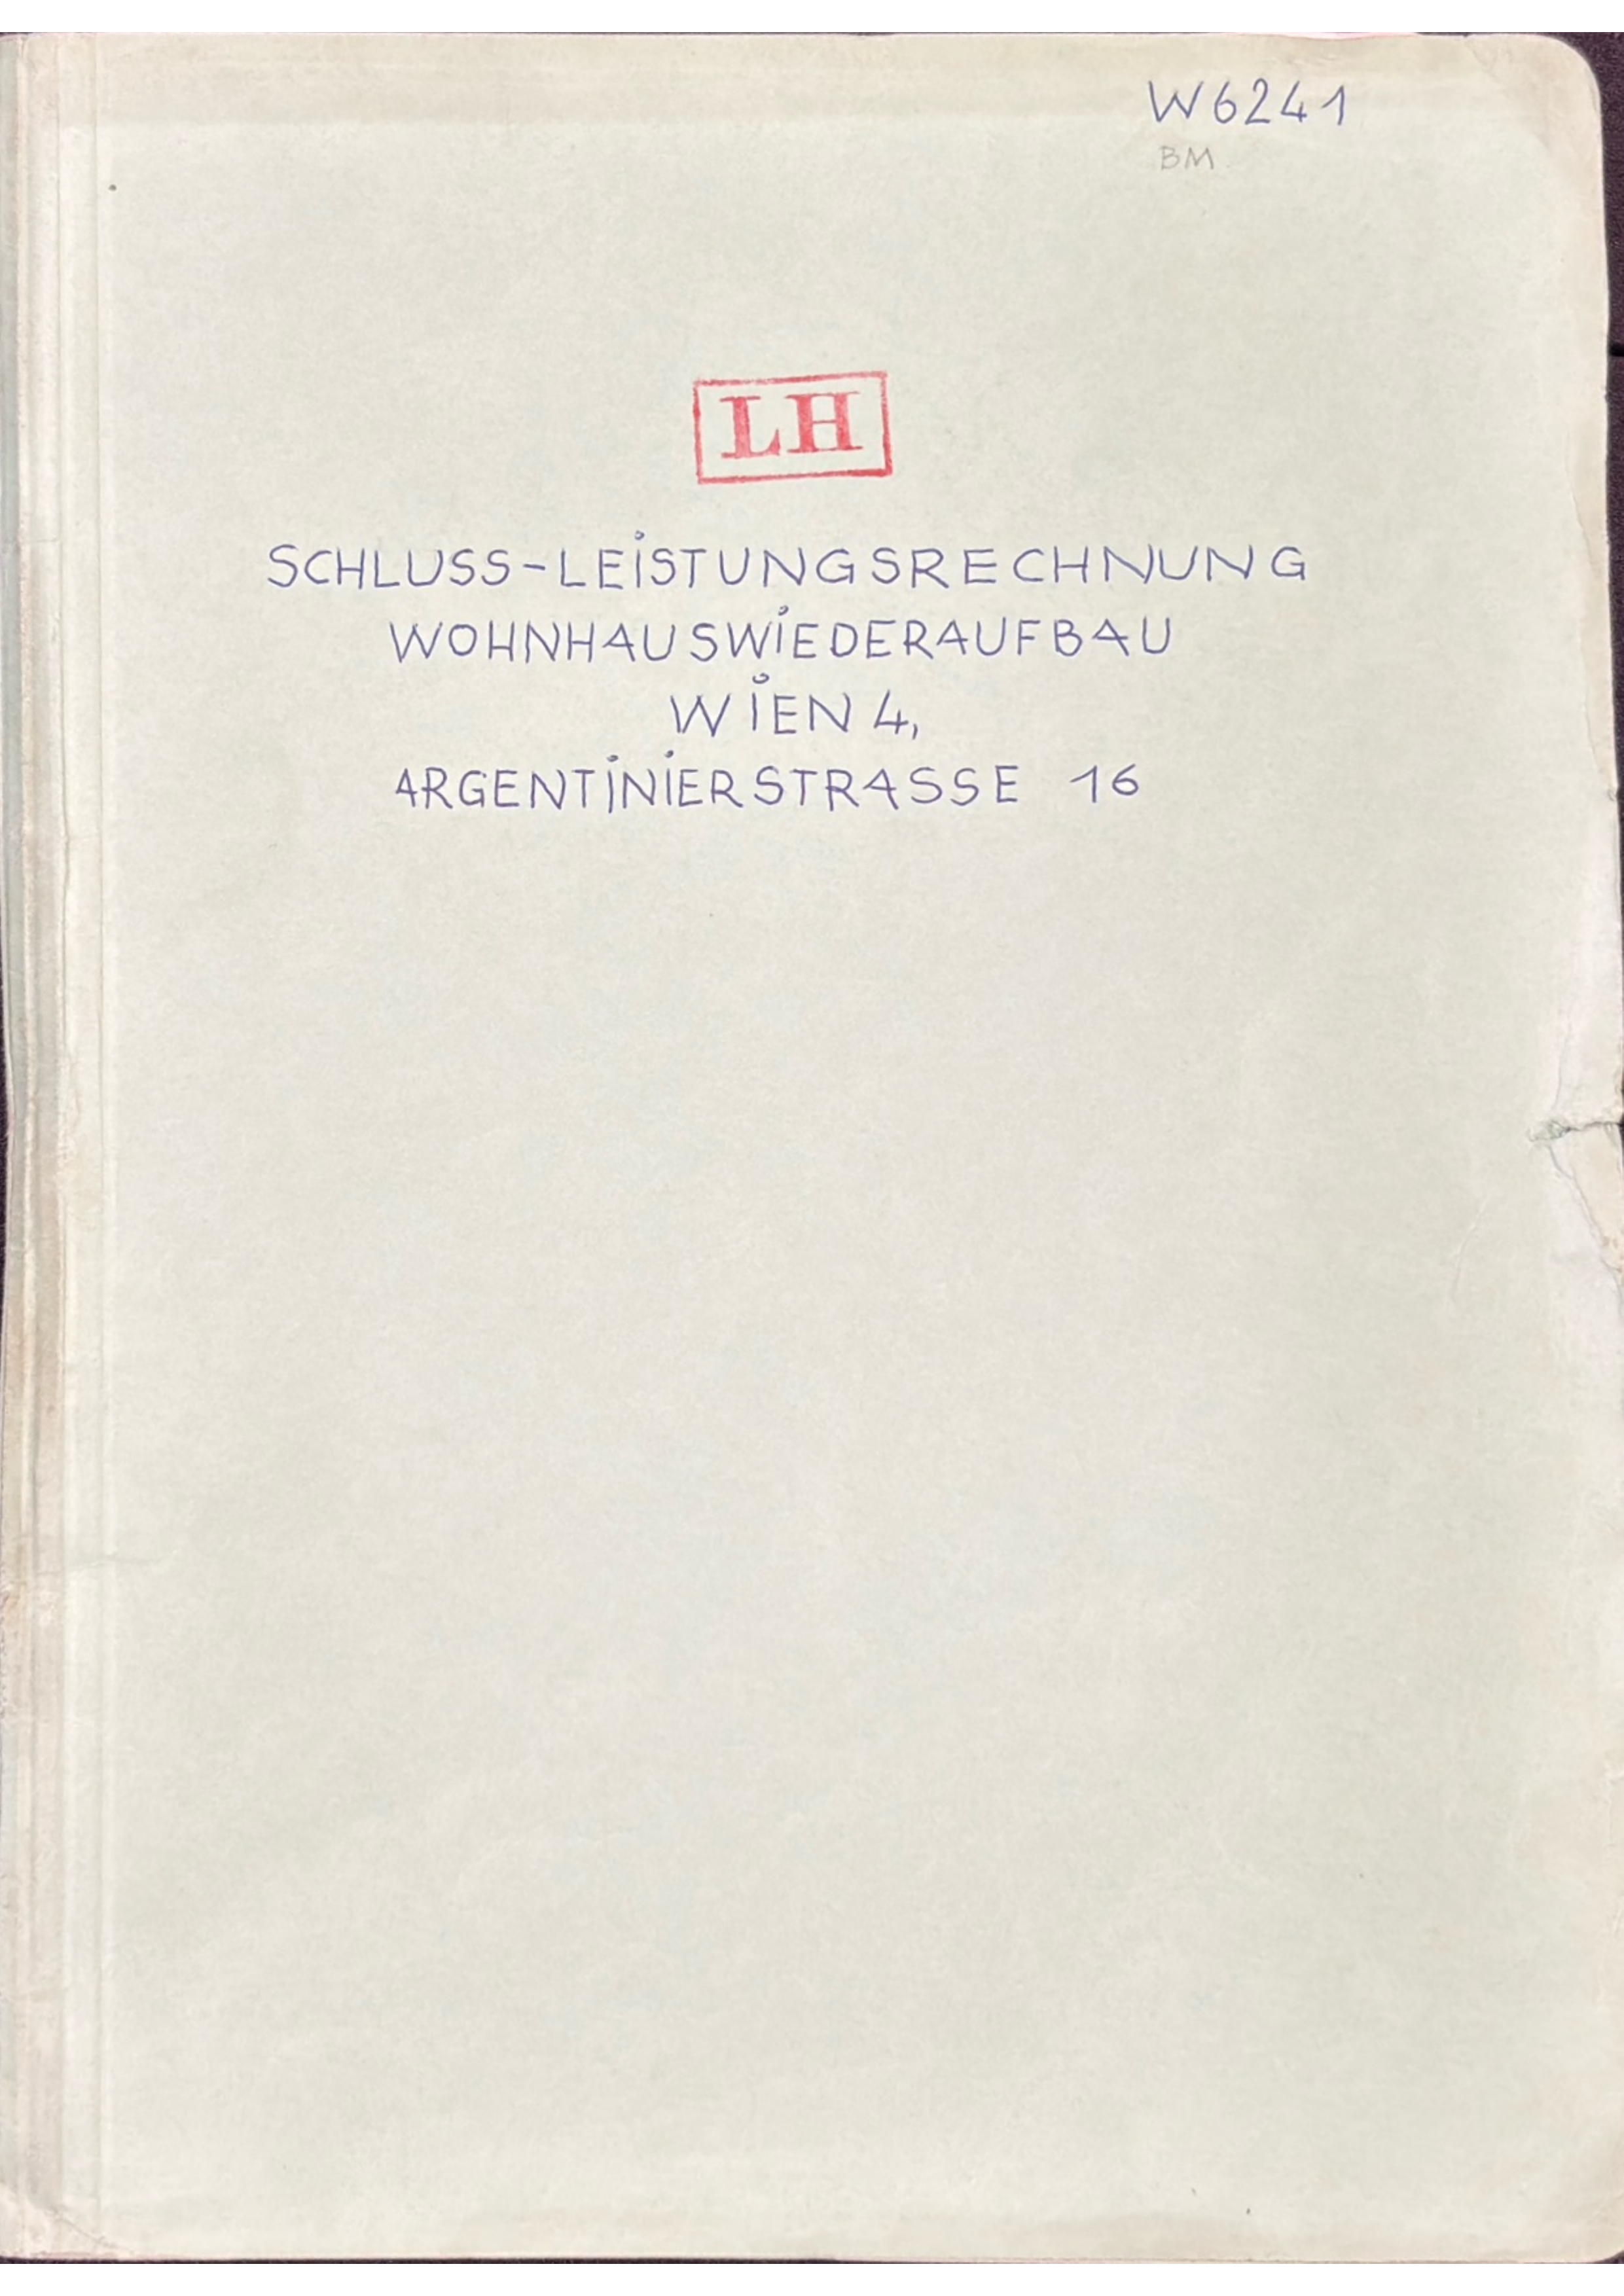 W6241
BM
LH
SCHLUSS-LEISTUNGSRECHNUNG
WOHNHAUSWIEDERAUFBAU
WIEN 4,
ARGENTINIERSTRASSE 16